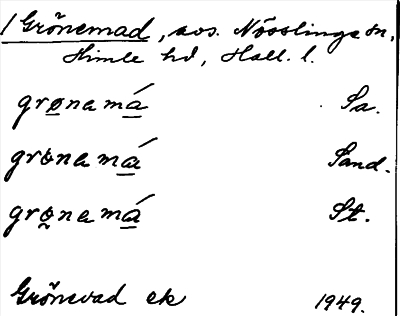 1 Grönemad, avs. Nösslinge sn,
Himle hd, Hall. l.
grọnamá Sa.
grönamá Sand.
grọ̈namá St.
Grönevad ek 1949.